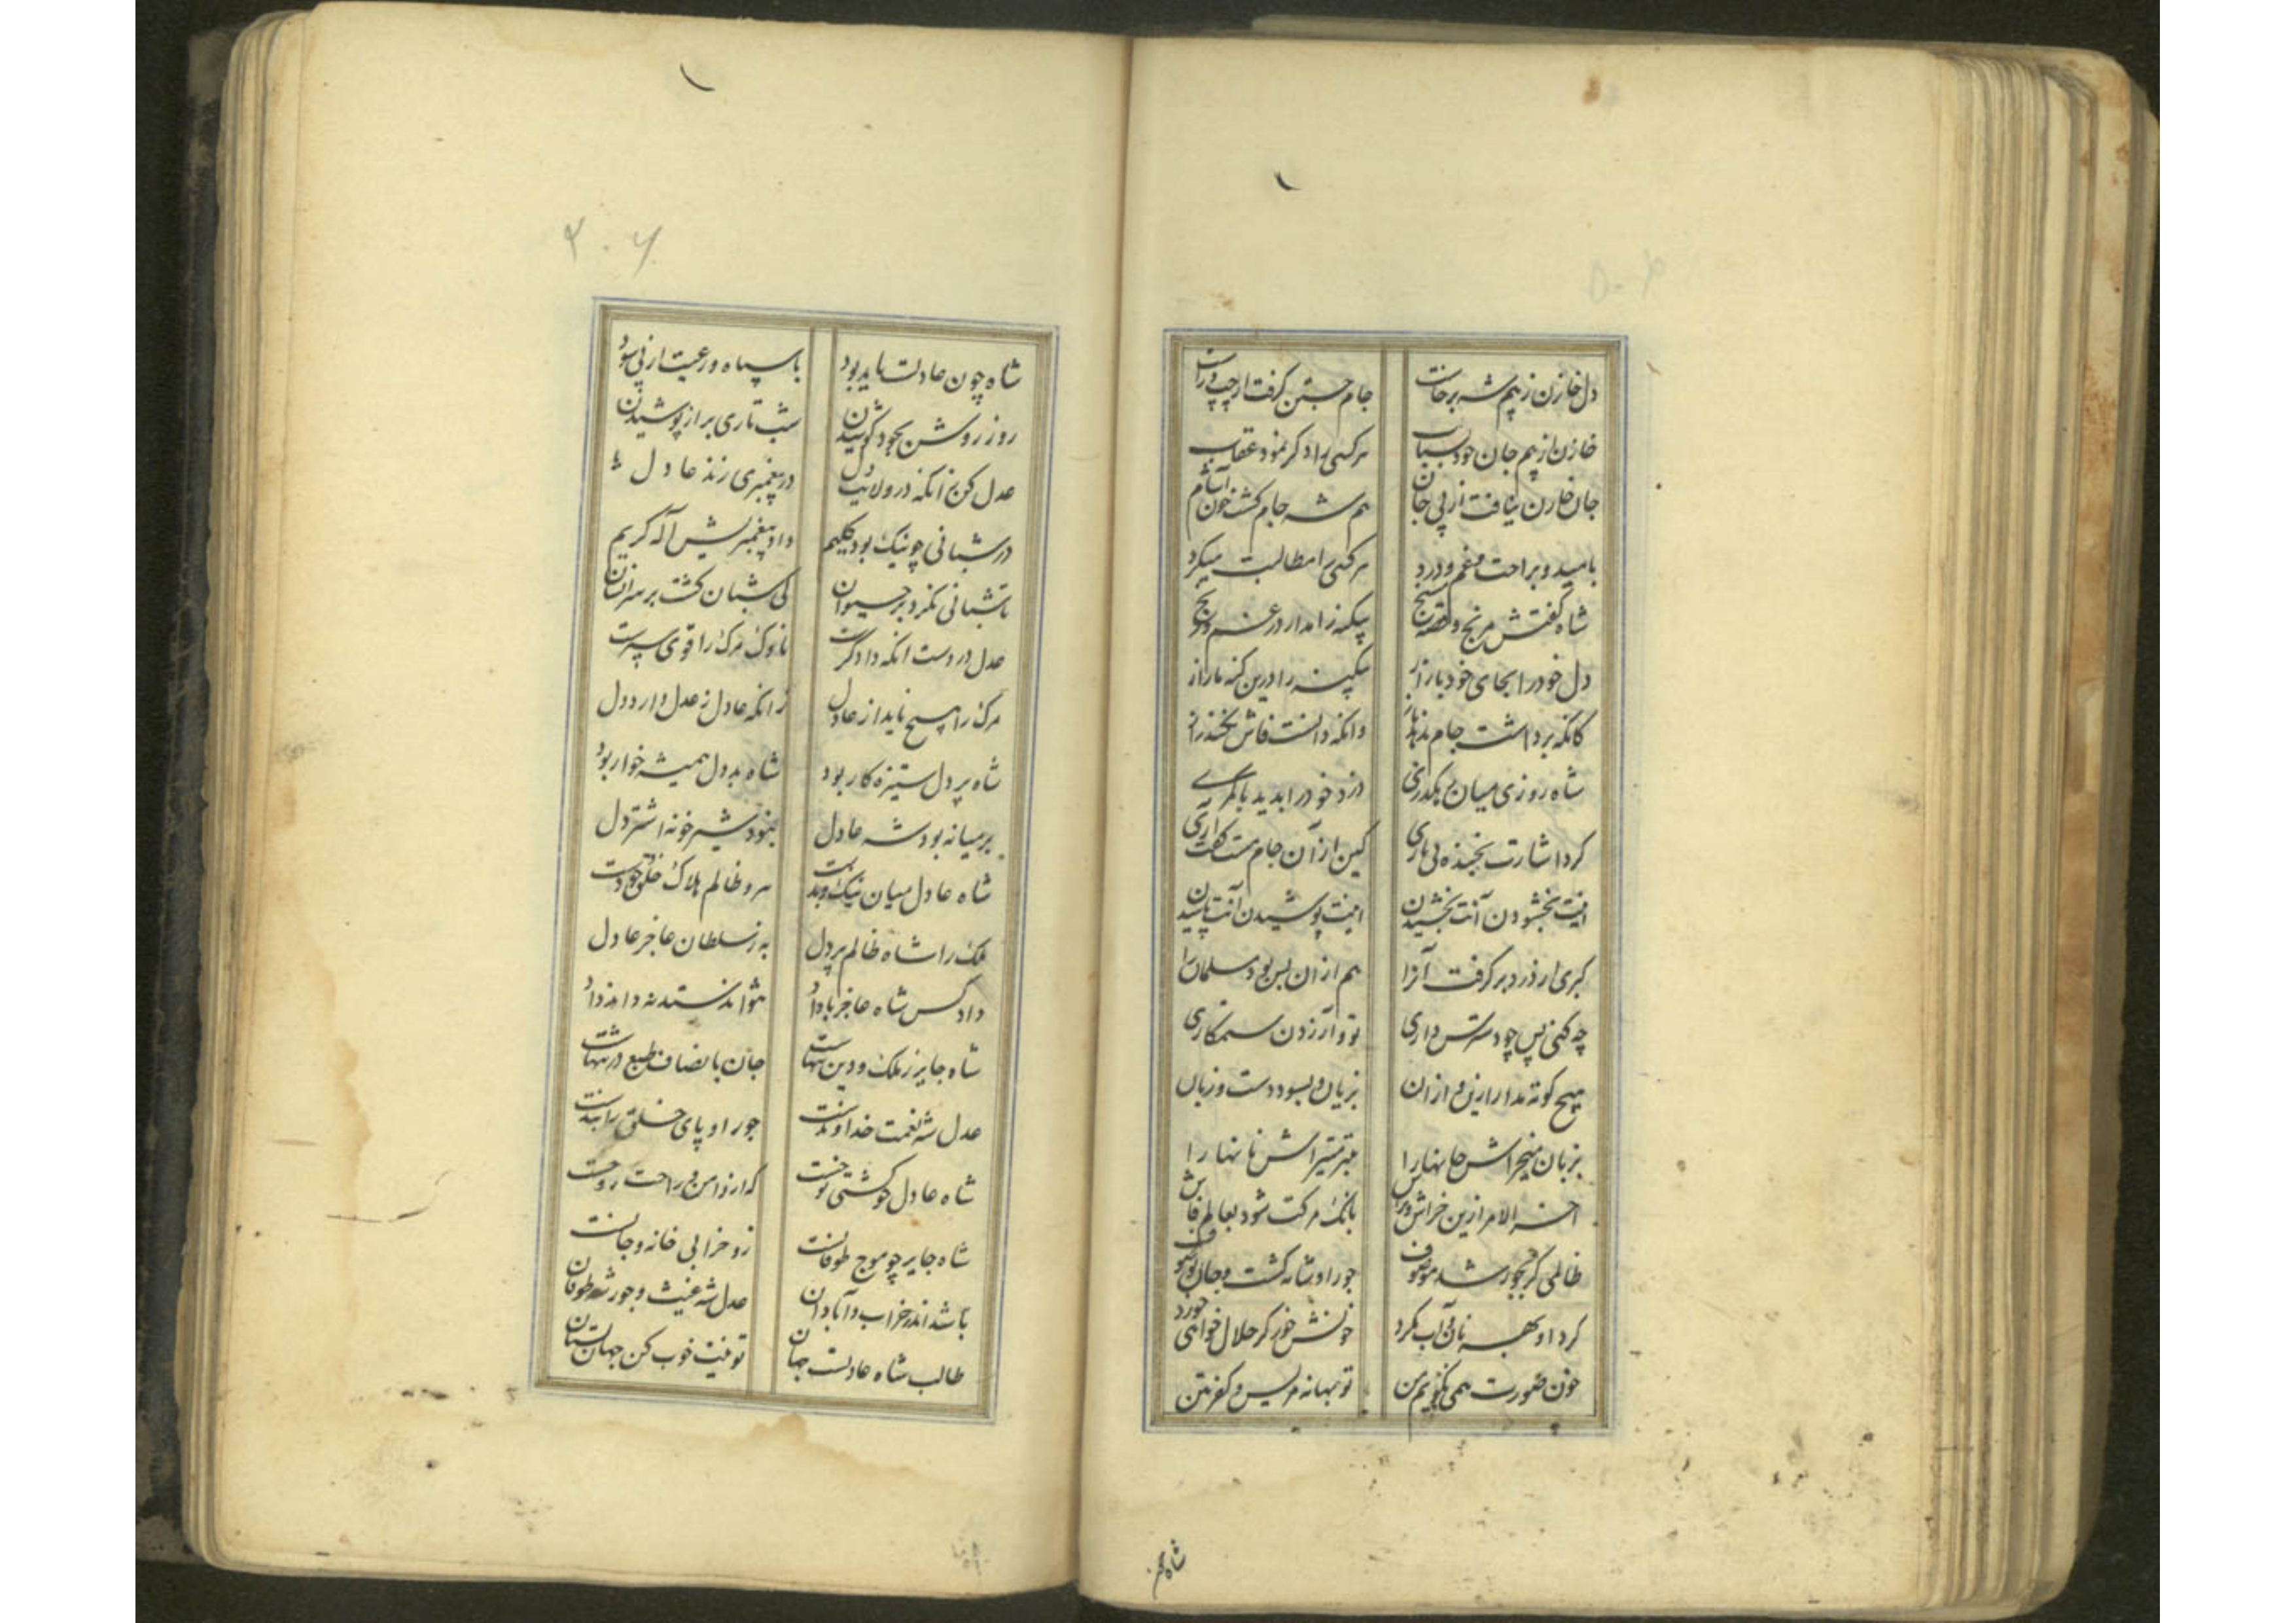 دل خازن ز بیم شه برخاست
جام جستن گرفت از چپ و راست
خازن از بیم جان خود بشتاب
هر کسی را دگر نمود عقاب
جان خازن بتافت از پی جان
هم شه جام کشت خون آشام
بامید و براحت و غم و درد
هر کسی را مطالبت میکرد
شاه گفتش مرنج و قصه مسنج
بیگنه را مدار در غم و رنج
دل خود را بجای خود باز آر
بیگنه را درین گنه مازار
کانکه برداشت جام ندهد باز
وانکه دانست فاش نکند راز
شاه روزی میان رهگذری
دزد خود را بدید با کمری
کرد اشارت بخنده بی یاری
کین از آن جام هست گفت آری
اینت بخشودن آنت بخشیدن
اینت پوشیدن آنت پاشیدن
گبری ار زر دبر گرفت آنرا
هم از ان بس بود مسلمان را
چه کنی پس چو دسترس داری
تو و آزردن ستمکاری
هیچ کوته مدار ازین و از ان
بزیان و بسود دست و زبان
بزبان میخراش جانها را
بتبر میتراش نانها را
آخر الامر ازین خراش و تراش
بانگ مرگت شود بعالم فاش
ظالمی گر بجور شد موصوف
جور او شانه گشت و جان تو صوف
کرد او بهر نان و آب مگرد
خونش خور گر حلال خواهی خورد
خون صورت همی نگویم من
تو بهانه مریس و کفر متن
شاه چون عادلست باید بود
با سپاه و رعیت از پی سود
روز روشن بجود کوشیدن
شب تاری براز پوشیدن
عدل کن زانکه در ولایت دل
در پیغمبری زند عادل
در شبانی چو نیک بود کلیم
داد پیغمبریش آله کریم
تا شبانی نکرد بر حیوان
کی شبان گشت بر سر انسان
عدل در دست آنکه دادگرست
ناوک مرگ را قوی سپرست
مرگ را هیچ ناید از عادل
زانکه عادل ز عدل دارد دل
شاه پر دل ستیزه کار بود
شاه بد دل همیشه خوار بود
بر میانه بود شه عادل
نبود شیر خو نه اشتر دل
شاه عادل میان نیک و بدست
مرد ظالم هلاک خلق خودست
ملک را شاه ظالم پر دل
به ز سلطان عاجز عادل
داد کس شاه عاجز باداد
نتواند ستد نه داند داد
شاه جایر ز ملک و دین تنهاست
جان با انصاف طبع در تنهاست
عدل شه نعمت خداوندست
جور او پای خلق را بندست
شاه عادل چو کشتی نوحست
که ازو امن و راحت روحست
شاه جایر چو موج طوفانست
زو خرابی خانه و جانست
باشد اندر خراب و آبادان
عدل شه غیث و جور شه طوفان
طالب شاه عادلست جهان
تو نیت خوب کن جهان بستان
شاه چون